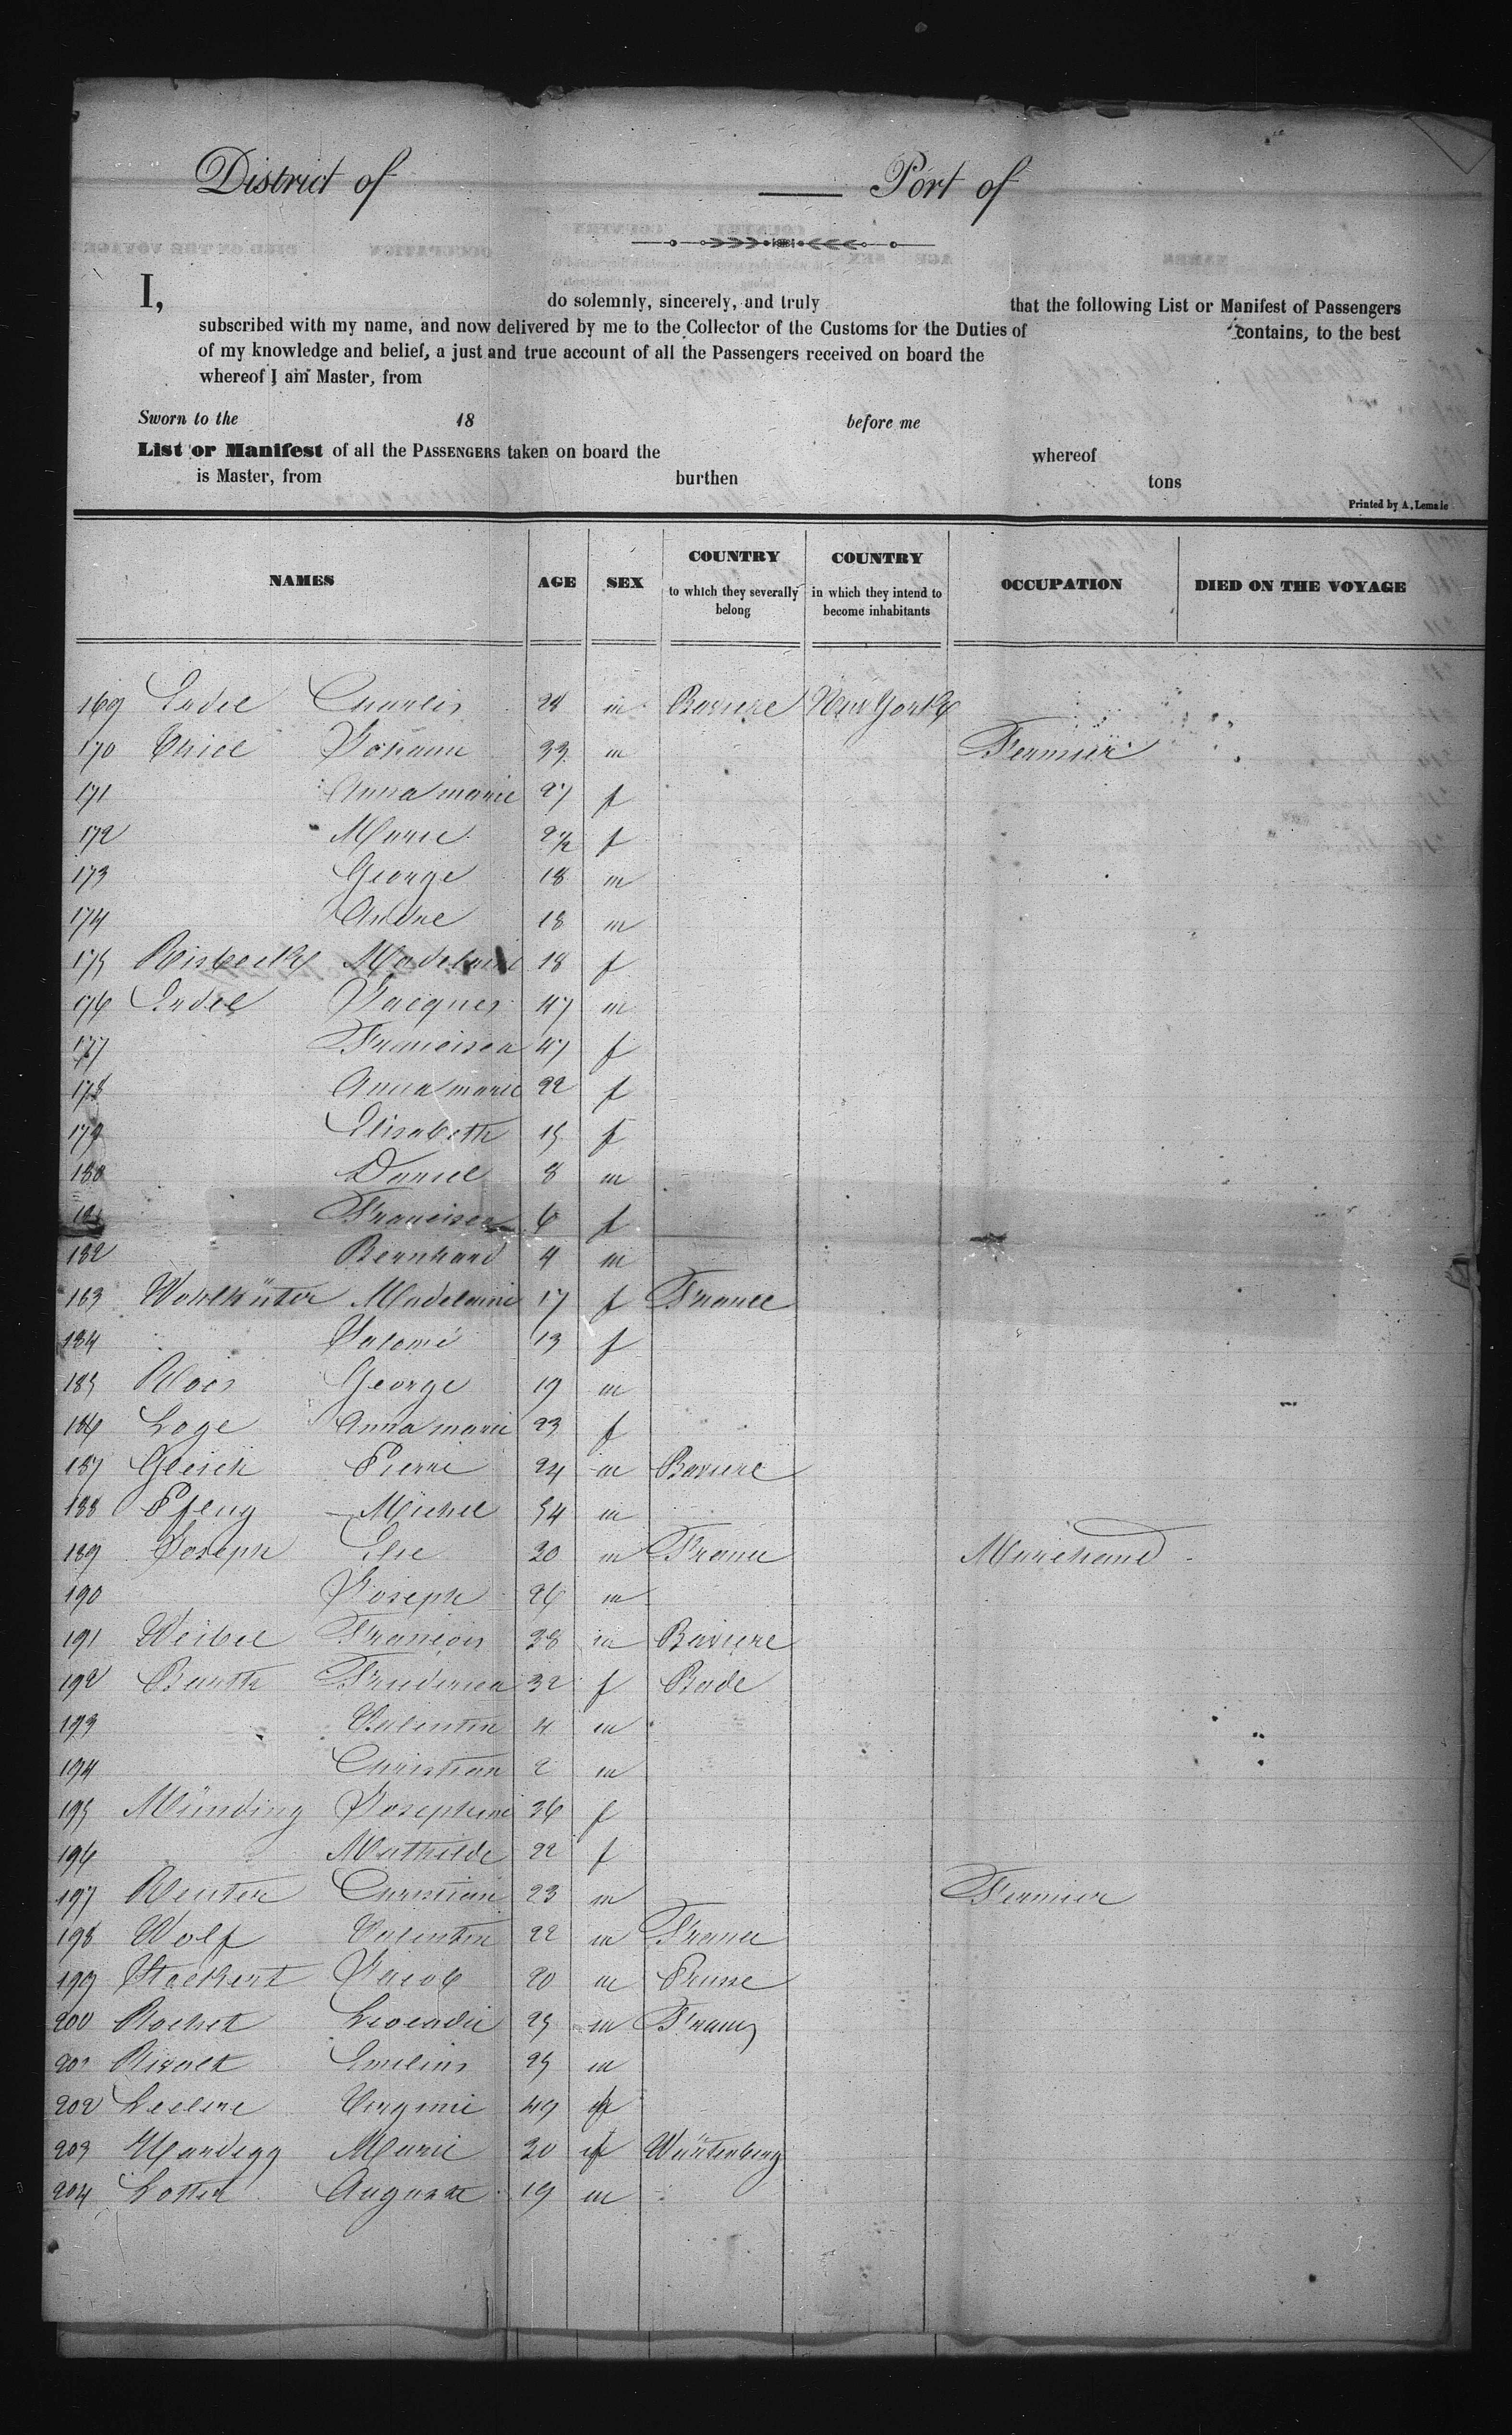 District of Port of
I, do solemnly, sincerely, and truly that the following List or Manifest of Passengers
subscribed with my name, and now delivered by me to the Collector of the Customs for the Duties of contains, to the best
of my knowledge and belief, a just and true account of all the Passengers received on board the
whereof I am Master, from
Sworn to the 18 before me
List or Manifest of all the PASSENGERS taken on board the whereof
is Master, from burthen tons
Printed by A. Lemale
NAMES AGE SEX COUNTRY to which they severally belong COUNTRY in which they intend to become inhabitants OCCUPATION DIED ON THE VOYAGE
169 Endel Charles 28 m Baviere New York
170 Thiel Johann 33 m Fermier
171 Anna marie 27 f
172 Marie 2 1/2 f
173 George 18 m
174 Andre 18 m
175 Risbeck Madelaine 18 f
176 Endel Jacques 47 m
177 Francisca 47 f
178 Anna marie 22 f
179 Elisabeth 15 f
180 Daniel 8 m
181 Francisca 6 f
182 Bernhard 4 m
183 Wohlhüter Madelaine 17 f France
184 Salomé 13 f
185 Roos George 19 m
186 Loge Anna marie 23 f
187 Gleich Pierre 24 m Baviere
188 Pfleug Michel 54 m
189 Joseph Elie 20 m France Marchand
190 Joseph 26 m
191 Weibel François 38 m Baviere
192 Barth Friederica 32 f Bade
193 Valentin 4 m
194 Christian 2 m
195 Münding Josephine 36 f
196 Mathilde 22 f
197 Reuter Christian 23 m Fermier
198 Wolf Valentin 22 m France
199 Stockert Jacob 20 m Prusse
200 Rochet Leocadie 25 m France
201 Rivolt Emelius 25 m
202 Leclerc Virginie 49 f
203 Hardegg Marie 20 f Würtenberg
204 Lotter Auguste 19 m